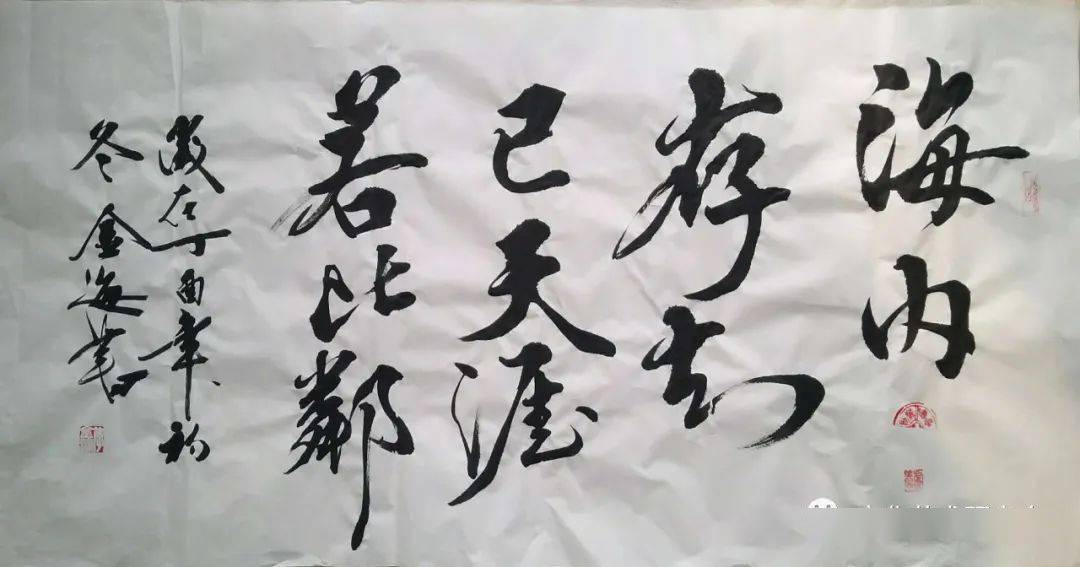 海内
存知
己天涯
若比鄰
歲在丁酉年初
冬金海书